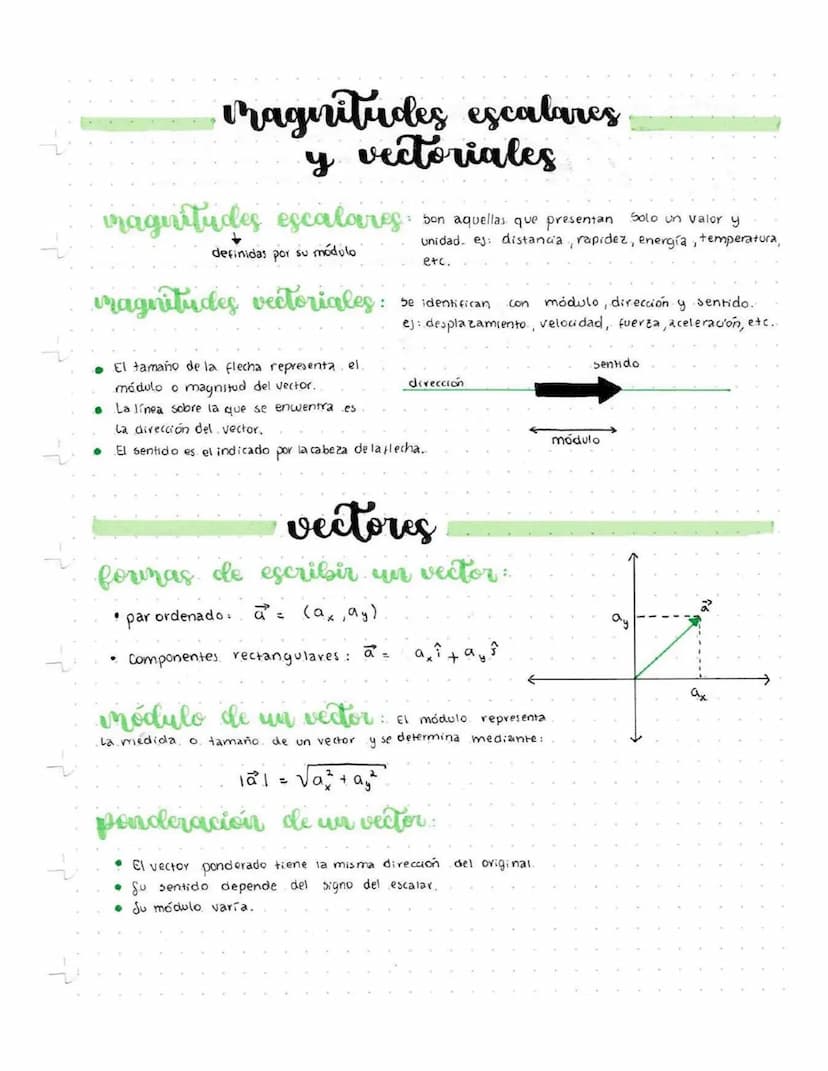 magnitudes escalares
y vectoriales
magnitudes escalares: son aquellas que presentan solo un valor y
unidad. ej: distancia, rapidez, energía, temperatura,
etc.
↓
definidas por su módulo
magnitudes vectoriales: se identifican con módulo, dirección y sentido.
ej: desplazamiento, velocidad, fuerza, aceleración, etc.
• El tamaño de la flecha representa el
módulo o magnitud del vector.
• La línea sobre la que se encuentra es
la dirección del vector.
• El sentido es el indicado por la cabeza de la flecha.
sentido
dirección
módulo
vectores
formas de escribir un vector:
• par ordenado: a⃗ = (aₓ, a_y)
• componentes rectangulares: a⃗ = aₓ î + a_y ĵ
a⃗
a_y
aₓ
módulo de un vector: El módulo representa
la medida o tamaño de un vector y se determina mediante:
|a⃗| = √(aₓ² + a_y²)
ponderación de un vector:
• El vector ponderado tiene la misma dirección del original.
• Su sentido depende del signo del escalar.
• Su módulo varía.